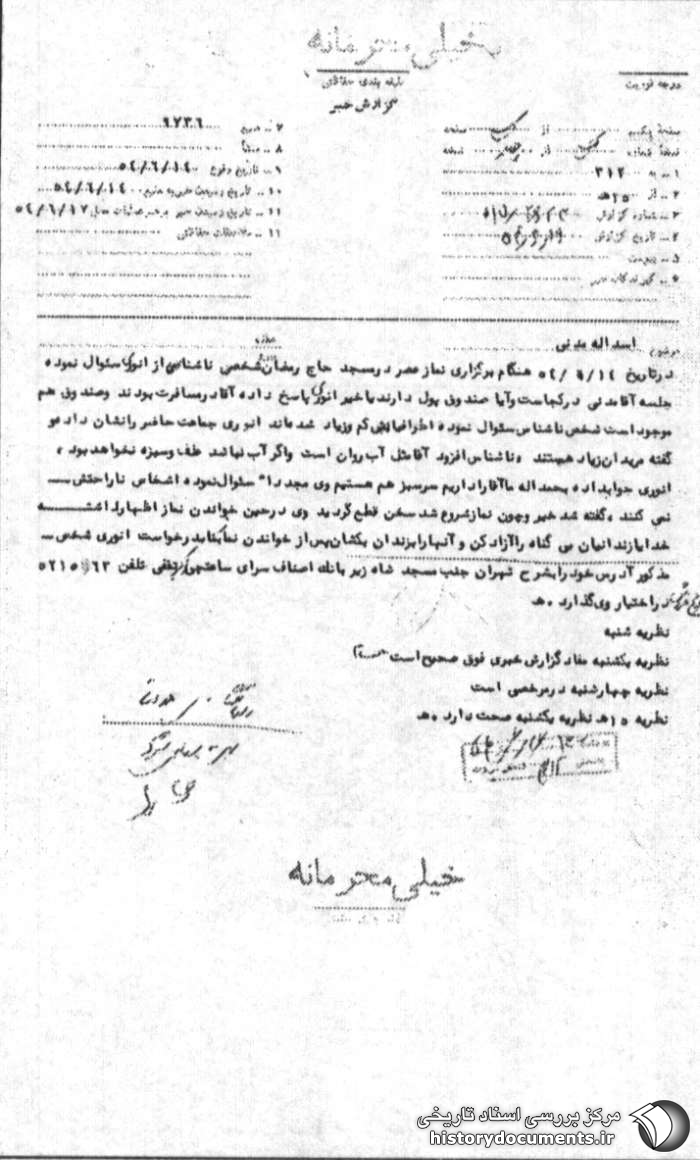 خیلی محرمانه
درجه فوریت
طبقه بندی حفاظتی
گزارش خبر
صفحه یکم از یک صفحه
نسخه شماره از نسخه
۱ - به ۳۱۲
۲ - از ۱۵هـ
۳ - شماره گزارش
۴ - تاریخ گزارش
۵ - پیوست
۶ - گیرندگان خبر
۷ - منبع ۹۷۳۶
۸ - منشأ
۹ - تاریخ وقوع ۵۴/۶/۱۴
۱۰ - تاریخ رسیدن خبر به منبع ۵۴/۶/۱۴
۱۱ - تاریخ رسیدن خبر به رهبر عملیات ۵۴/۶/۱۷
۱۱ - ملاحظات حفاظتی
موضوع اسداله مدنی
درتاریخ ۵۴/۶/۱۴ هنگام برگزاری نماز عصر درمسجد حاج رمضان شخصی ناشناس از انوری سئوال نموده
جلسه آقامدنی درکجاست وآیا صندوق پول دارند یاخیر انوری پاسخ داده آقادرمسافرت بودند وصندوق هم
موجود است شخص ناشناس سئوال نموده اطرافیانش کم وزیاد شده‌اند انوری جماعت حاضر رانشان داده و
گفته مریدان زیاد هستند ، ناشناس افزود آقامثل آب روان است واگر آب نباشد علف وسبزه نخواهد بود ،
انوری جوابداده بحمداله ماآقاراداریم سرسبز هم هستیم وی مجددا" سئوال نموده اشخاص ناراحتش
نمی کنند ، گفته شد خیر وچون نماز شروع شد سخن قطع گردید وی درحین خواندن نماز اظهار داشته
خدایازندانیان بی گناه راآزادکن و آنهارابزندان بکشان پس از خواندن نماز بنابدرخواست انوری شخص
مذکور آدرس خود رابشرح تهران جنب مسجد شاه زیر بانک اصناف سرای تلفن ۵۲۱۵۶۳
دراختیار وی گذارد . هـ
نظریه شنبه
نظریه یکشنبه مفاد گزارش خبری فوق صحیح است
نظریه چهارشنبه درمرخصی است
نظریه ۱۵هـ نظریه یکشنبه صحت دارد . هـ
خیلی محرمانه
مرکز بررسی اسناد تاریخی
historydocuments.ir